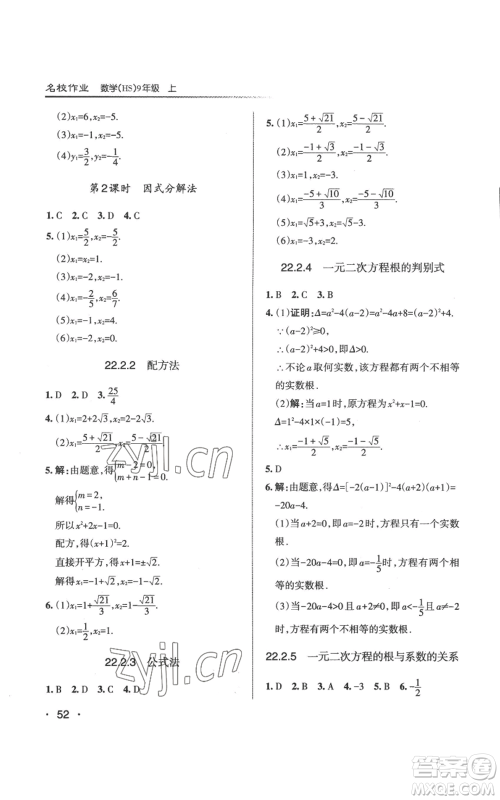 名校作业 数学(HS)9年级 上
(2)x₁=1,x₂=-6.
(3)x₁=-1,x₂=-5.
(4)y₁=3/2,y₂=-1/4.
第2课时 因式分解法
1. C 2. C 3. D 4. C
5. (1)x₁=5,x₂=-5.
(2)x₁=0,x₂=6.
(3)x₁=-1,x₂=6.
(4)x₁=-2/5,x₂=6/7.
(5)x₁=-1,x₂=0.
(6)x₁=-1,x₂=4.
22.2.2 配方法
1. D 2. D 3. 25/4
4. (1)x₁=2+2√3,x₂=2-2√3.
(2)x₁=(5+√21)/2,x₂=(5-√21)/2.
5. 解:由题意,得{m-2=0, m+n-1=0,
解得{m=2, n=-1.
所以x²+2x-1=0.
配方,得(x+1)²=2.
直接开平方,得x+1=±√2.
解得x₁=-1+√2,x₂=-1-√2.
6. (1)x₁=-1+√21/3,x₂=-1-√21/3.
(2)x₁=0,x₂=-4.
22.2.3 公式法
1. B 2. D 3. D 4. D
· 52 ·
5. (1)x₁=(5+√21)/2,x₂=(5-√21)/2.
(2)x₁=(-1+√3)/2,x₂=(-1-√3)/2.
(3)x₁=1,x₂=-3.
(4)x₁=(-5+√10)/3,x₂=(-5-√10)/3.
(5)x₁=√5+3,x₂=√5-3.
(6)x₁=1,x₂=-3.
22.2.4 一元二次方程根的判别式
1. B 2. C 3. B
4. (1)证明:Δ=a²-4(a-2)=(a-2)²+4.
∵(a-2)²≥0,
∴(a-2)²+4>0,即Δ>0.
∴不论a取何实数,该方程都有两个不相等
的实数根.
(2)解:当a=1时,该方程为x²+x-1=0.
Δ=1²-4×1×(-1)=5,
∴x₁=(-1+√5)/2,x₂=(-1-√5)/2.
5. D
6. 解:由题意,得Δ=[-2(a-1)]²-4a(a+2)(a≠0)=
-20a-4.
(1)当-20a-4<0时,方程没有实数根.
(2)当-20a-4=0时,方程有两个相等的实
数根.
(3)当-20a-4>0且a≠0时,方程有两个不相
等的实数根.
22.2.5 一元二次方程的根与系数的关系
1. B 2. D 3. A 4. B 5. A 6. -1/2
zyjl.cn
zyjl.cn